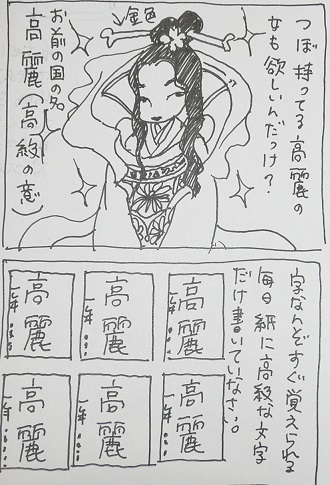 つぼ持ってる高麗の
なも欲しいんだっけ?
金色
お前の国の名
高麗(高級の意)
字なんてすぐ覚えられる
毎日紙に高級な文字
だけ書いていなさい。
高麗
一年....
高麗
一年....
高麗
一年....
高麗
一年....
高麗
一年....
高麗
一年....